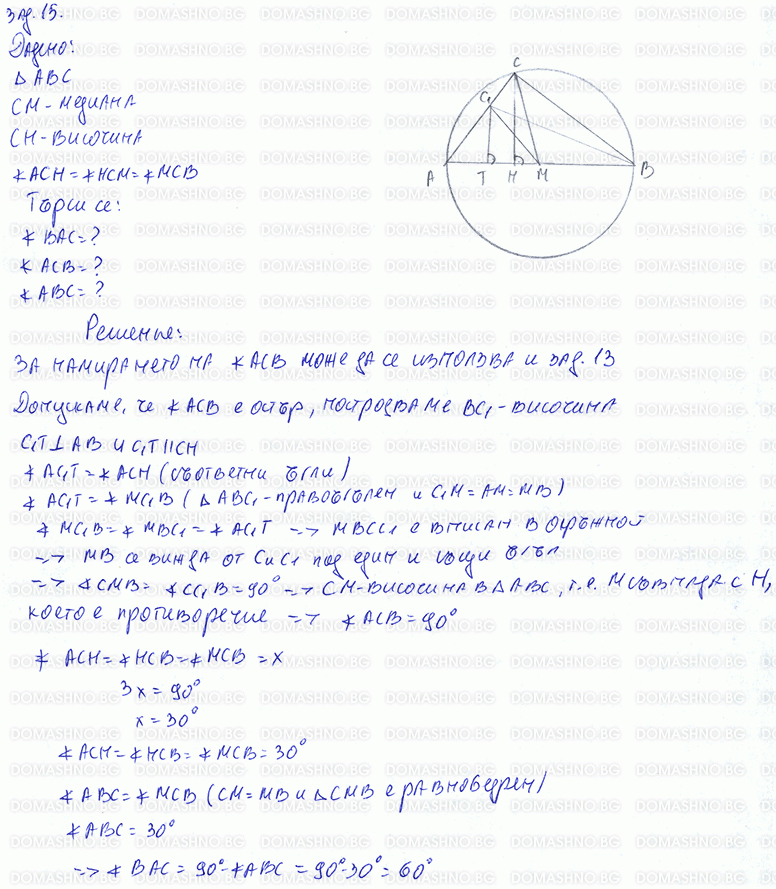 Зад. 15.
Дадено:
△ ABC
CM - медиана
CH - височина
∢ACH = ∢HCM = ∢MCB
Търси се:
∢ BAC = ?
∢ ACB = ?
∢ ABC = ?
Решение:
За намирането на ∢ACB може да се използва и зад. 13
Допускаме, че ∢ACB е остър, построяваме BC₁ - височина
C₁T ⊥ AB и C₁T || CH
∢ AC₁T = ∢ACH (съответни ъгли)
∢ AC₁T = ∢MC₁B (△ ABC₁ - правоъгълен и C₁M = AM = MB)
∢ MC₁B = ∢MBC₁ = ∢AC₁T --> MBCC₁ е вписан в окръжност
--> MB се вижда от C и C₁ под един и същи ъгъл
--> ∢CMB = ∢CC₁B = 90° --> CM - височина в △ABC, т.е. M съвпада с H,
което е противоречие --> ∢ACB = 90°
∢ ACH = ∢HCB = ∢MCB = x
3x = 90°
x = 30°
∢ACH = ∢HCB = ∢MCB = 30°
∢ABC = ∢MCB (CM = MB и △CMB е равнобедрен)
∢ABC = 30°
--> ∢ BAC = 90° - ∢ABC = 90° - 30° = 60°
C
C₁
A
T
H
M
B
DOMASHNO.BG